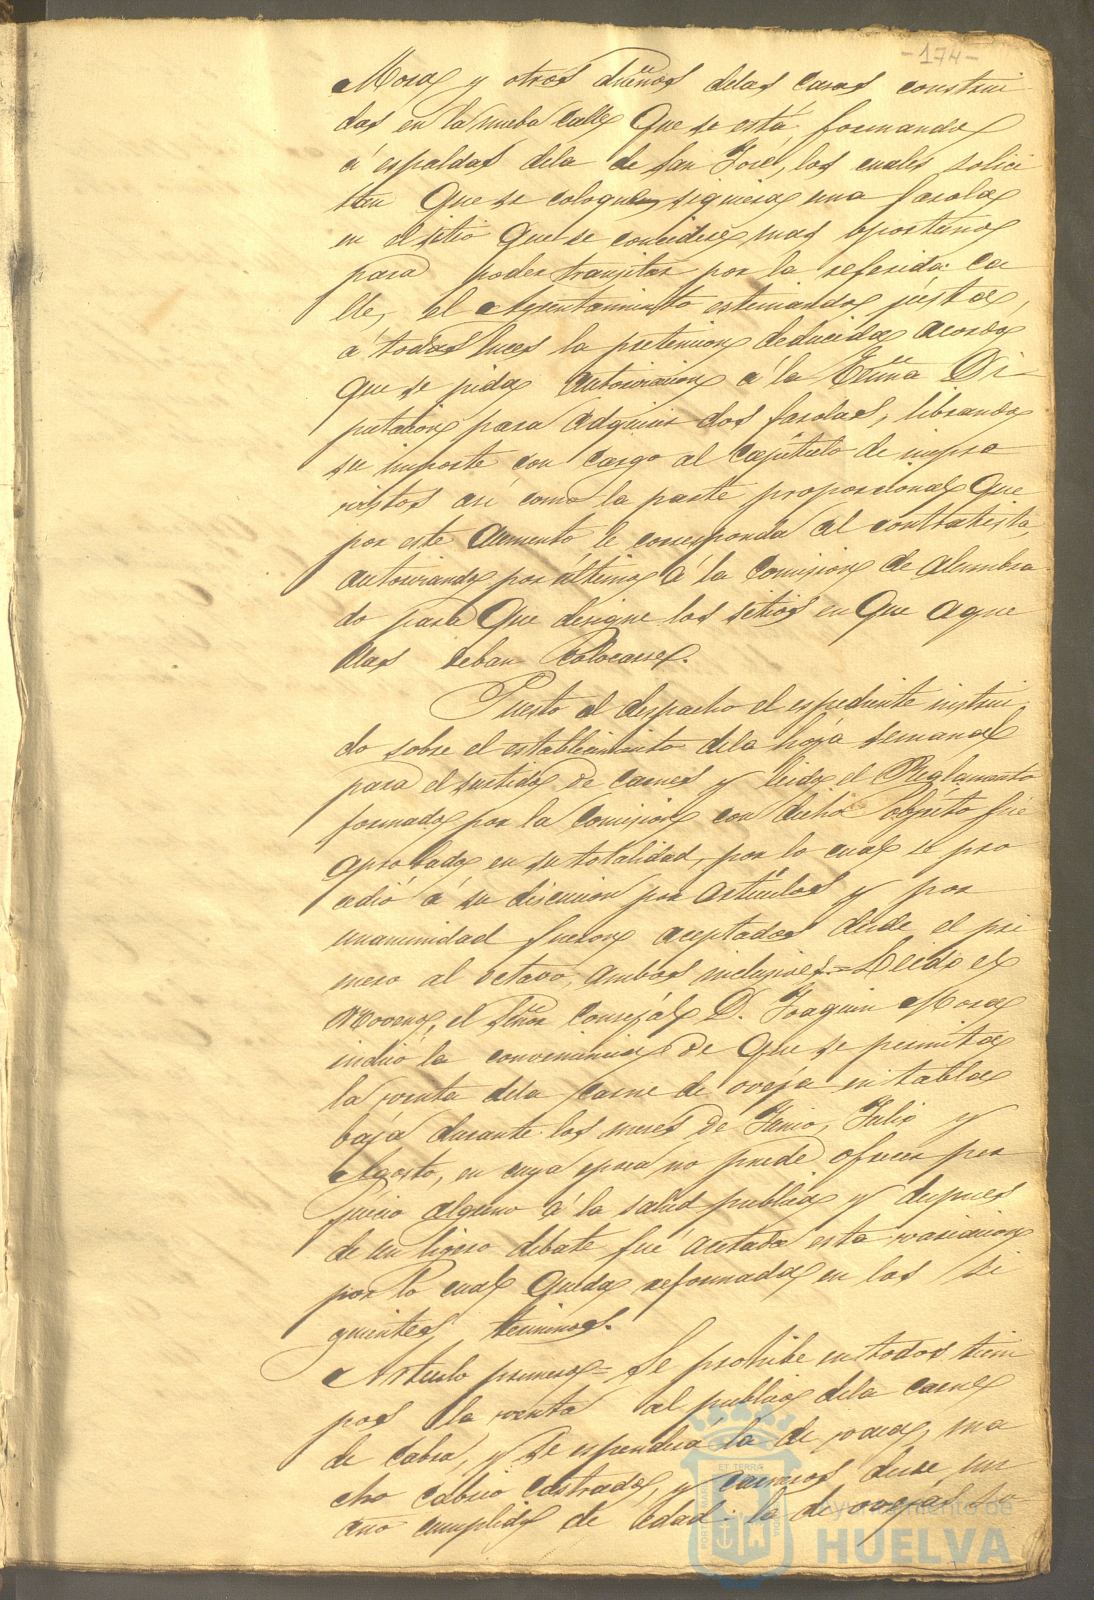 -174-
Mora y otros dueños delas casas construi
das en la nueba calle que se está formando
á espaldas dela de San José, los cuales solici
tan que se coloquen siquiera una farola
en el sitio que se considere mas oportuno
para poder transitar por la referida ca
lle, el Ayuntamiento estimando justa,
á todas luces la pretension deducida acordó
que se pida autorizacion á la Exma Di-
putacion para adquirir dos farolas, librando
su importe con cargo al capitulo de impre
vistos así como la parte proporcional que
por este aumento le corresponda al contratista,
autorizando por último á la Comision de alumbra
do para que designe los sitios en que aque
llas deban colocarse.
Puesto al despacho el espediente instrui
do sobre el establecimiento dela hoja semanal
para el surtido de carnes y leido el Reglamento
formado por la Comision con dicho objeto fué
aprobado en su totalidad, por lo cual se pro
cedió á su discucion por artículos y por
unanimidad fueron aceptados desde el pri
mero al octavo, ambos inclusives.=Leido el
Noveno, el Señor Consejál D. Joaquin Mora
indicó la conveniencia de que se permita
la venta dela carne de oveja en tabla
baja durante los meses de Junio, Julio y
Agosto, en cuya epoca no puede ofrecer per
juicio alguno á la salud publica y despues
de un ligero debate fue acetada esta variacion
por lo cual queda reformada en los si
guientes terminos.
Artículo primero= Se prohibe en todos tiem
pos la venta al publico dela carne
de cabra, y se espenderá la de vaca, ma
cho cabrio castrado, y carneros desde un
año cumplido de edad: la de ovejas su
ET TERRA
Ayuntamiento de
HUELVA